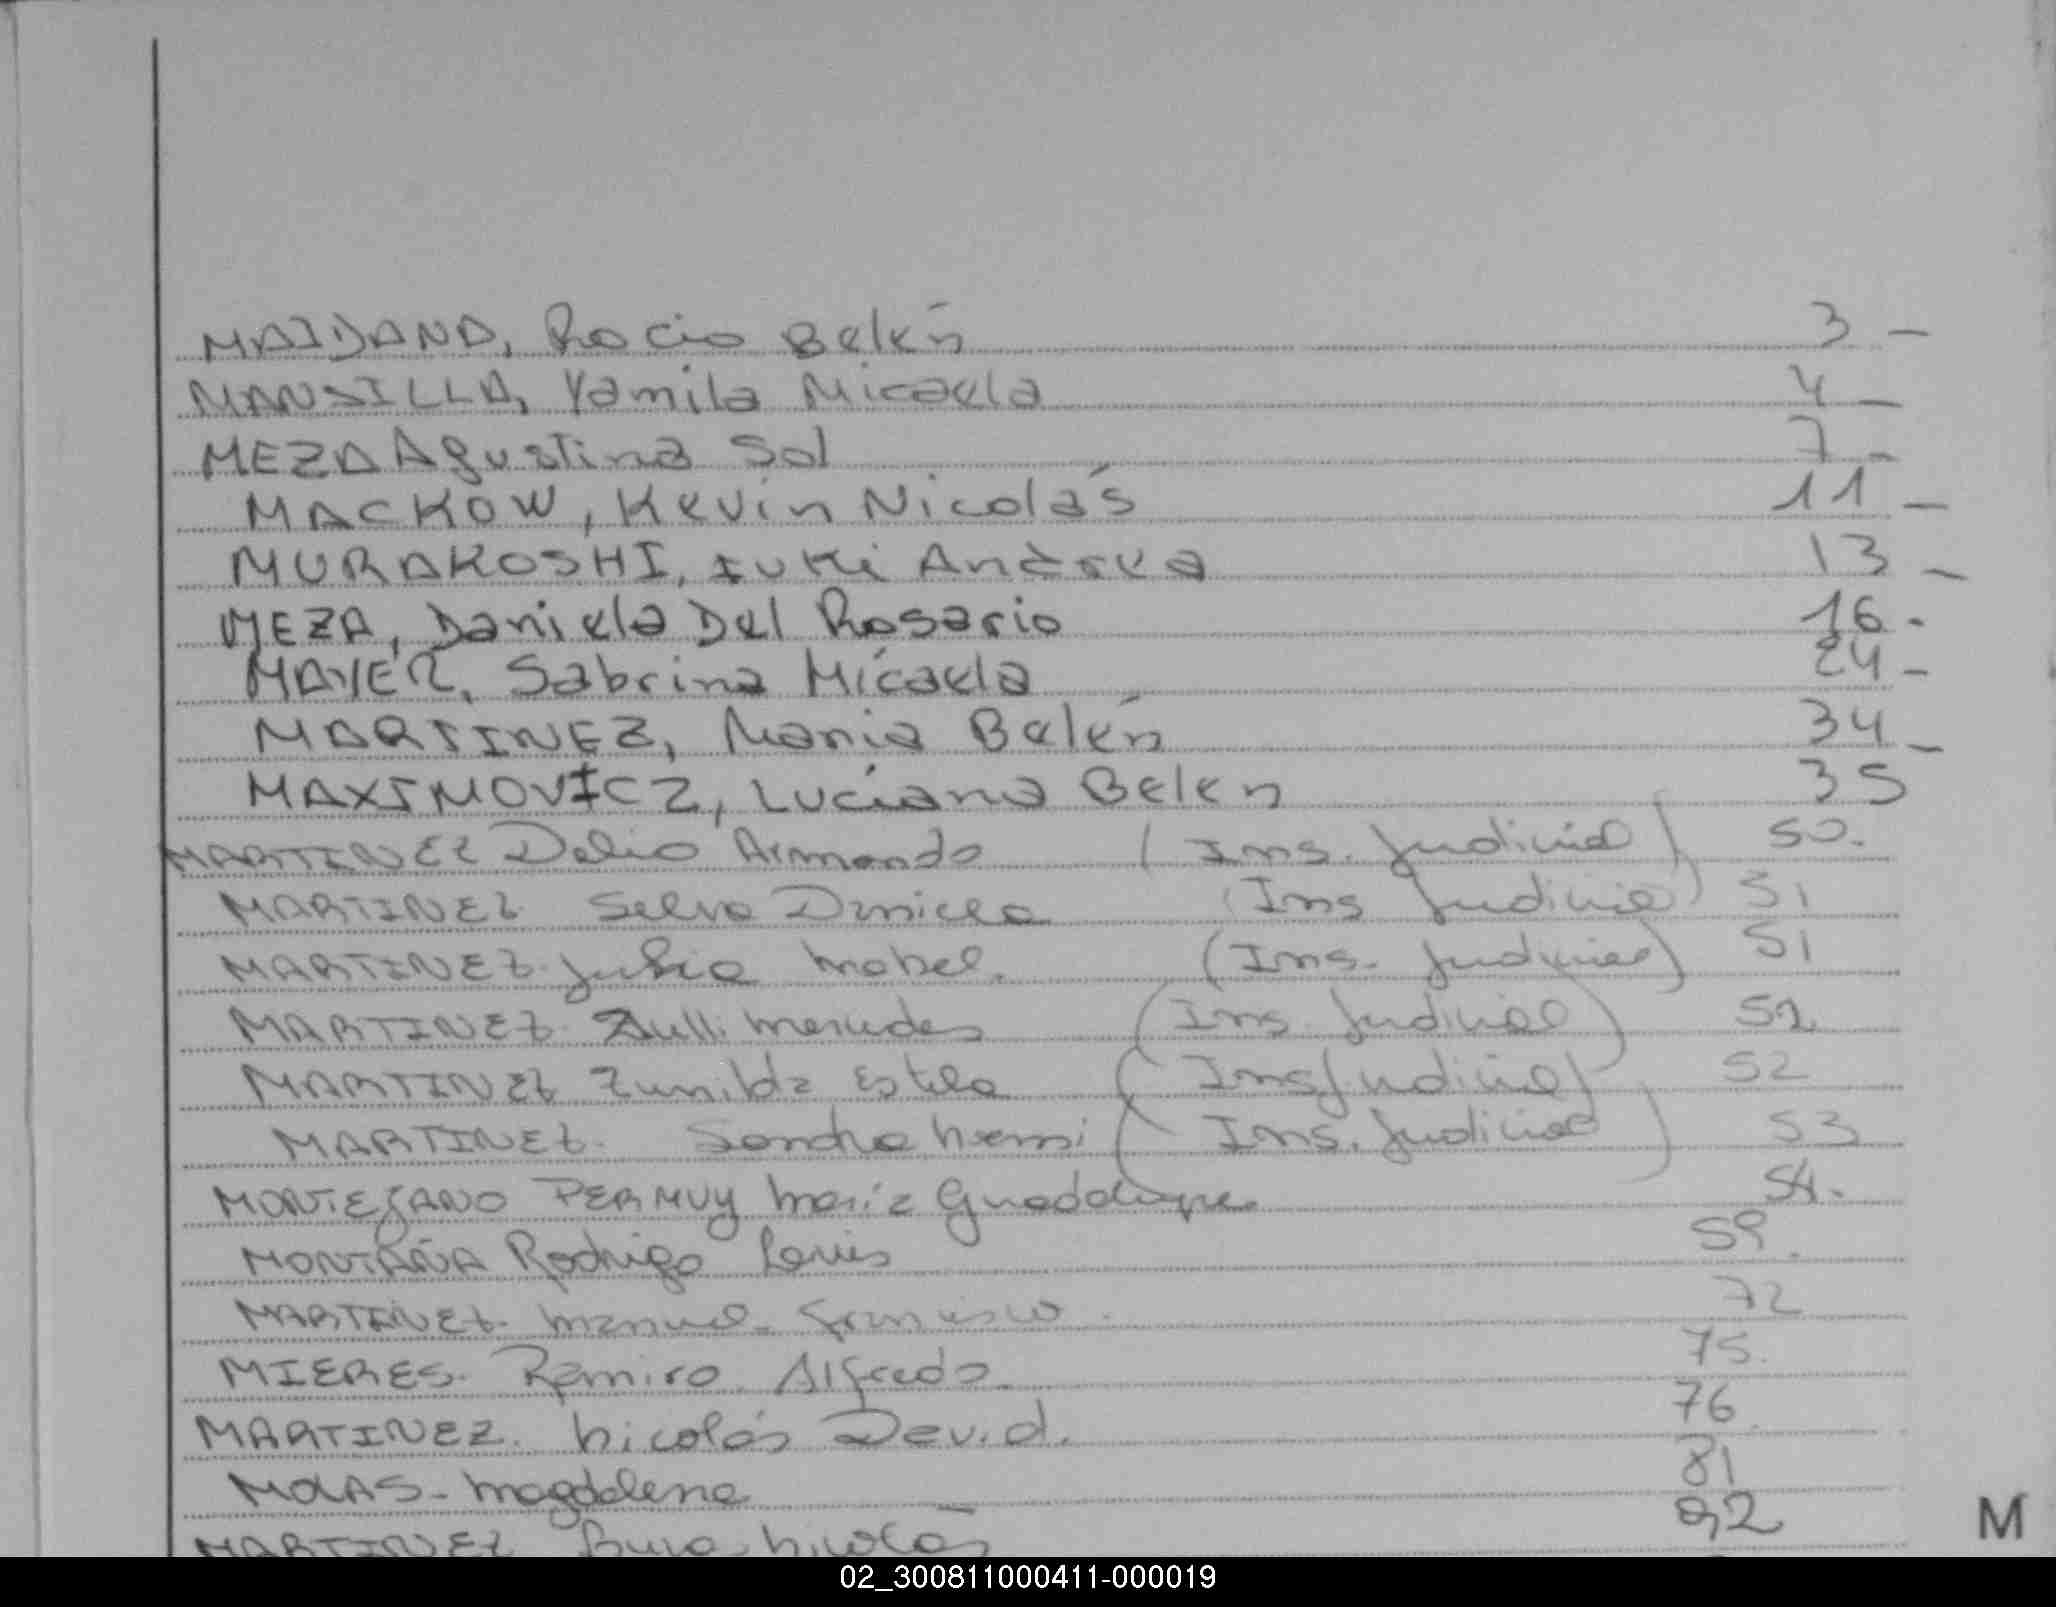 MAIDANA, Rocio Belén 3 -
MANSILLA, Yamila Micaela 4 -
MEZA Agustina Sol 7 -
MACKOW, Kevin Nicolás 11 -
MURAKOSHI, Iuki Andrea 13 -
MEZA, Daniela Del Rosario 16.
MAYER, Sabrina Micaela 24 -
MARTINEZ, Maria Belén 34 -
MAXIMOVICZ, Luciana Belen 35
MARTINEZ Delio Armando (Ins. Judicial) 50.
MARTINEZ Selva Daniela (Ins Judicial) 51
MARTINEZ Julia Mabel. (Ins. Judicial) 51
MARTINEZ Zulli Mercedes (Ins. Judicial) 52
MARTINEZ Zunilda Estela (Ins Judicial) 52
MARTINEZ. Sandra Noemi (Ins. Judicial) 53
MONTEJANO PERMUY María Guadalupe 54.
MONTAÑA Rodrigo Luis 59.
MARTINEZ Manuel Francisco. 72
MIERES. Ramiro Alfredo. 75.
MARTINEZ. Nicolás David. 76.
MOLAS - Magdalena 81
MARTINEZ Nicolás 92
M
02_300811000411-000019